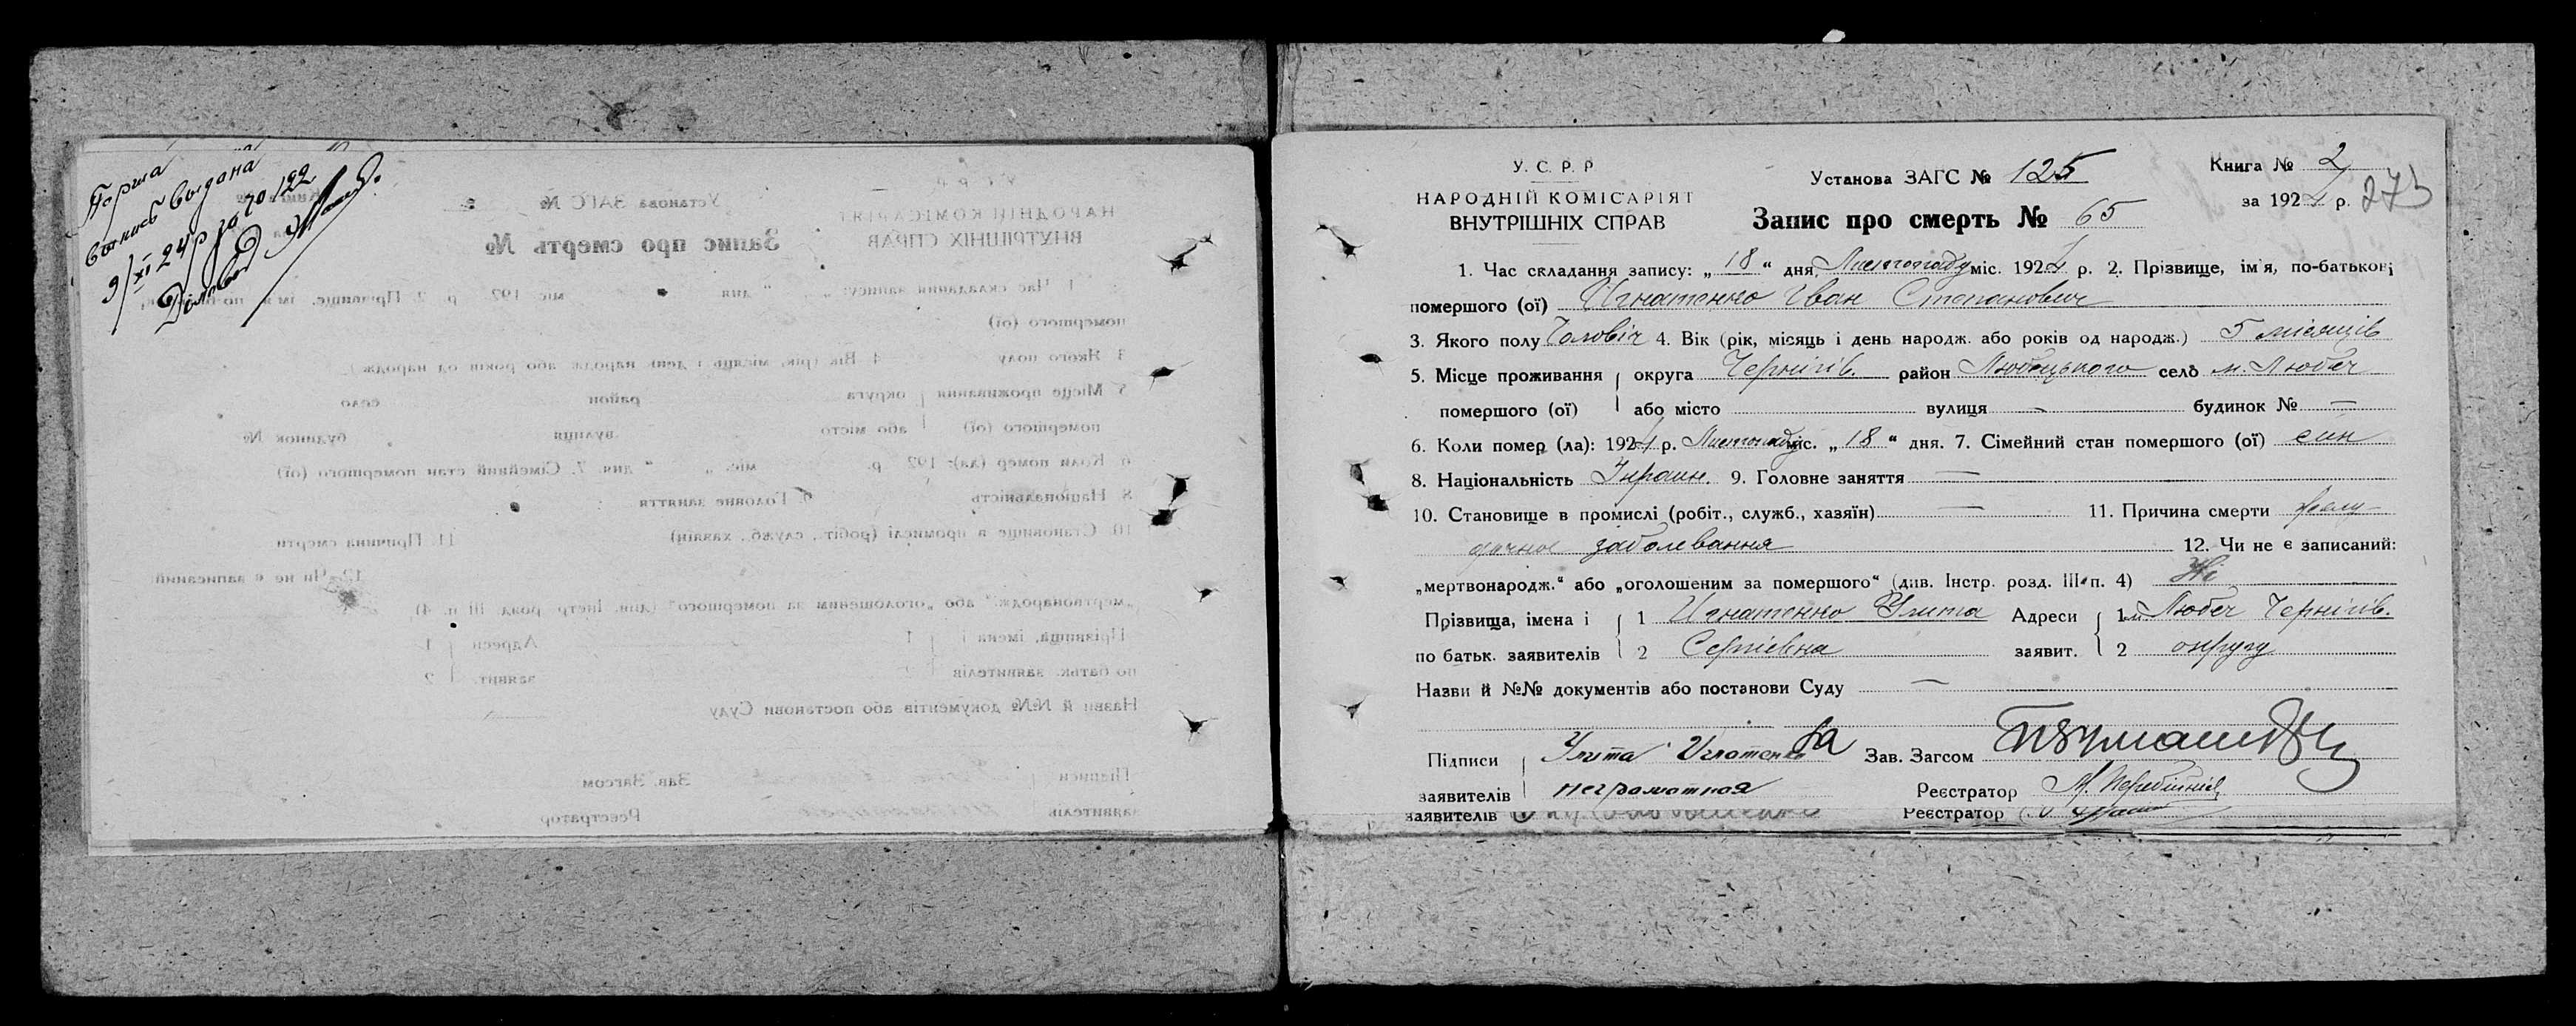 Перша
выпись выдана
9/XI 24 р за №122
У. С. Р. Р
НАРОДНІЙ КОМІСАРІЯТ
ВНУТРІШНІХ СПРАВ
Установа ЗАГС № 125
Запис про смерть № 65
Книга № 2
за 1924 р. 273
1. Час складання запису: „18“ дня, Листопаду міс. 1924 р. 2. Прізвище, ім'я, по-батькові
помершого (ої) Игнатенко Іван Степанович
3. Якого полу Чоловіч 4. Вік (рік, місяць і день народж. або років од народж.) 5 місяців
5. Місце проживання округа Чернігів. район Любецького село м. Любеч
помершого (ої) або місто вулиця - будинок № —
6. Коли помер (ла): 1924 р. Листопаду міс. „18“ дня. 7. Сімейний стан помершого (ої) син
8. Національність Украин. 9. Головне заняття —
10. Становище в промислі (робіт., служб., хазяїн) — 11. Причина смерти желу-
дочное заболевання 12. Чи не є записаний:
„мертвонародж.“ або „оголошеним за помершого“ (див. Інстр. розд. III п. 4) Не
Прізвища, імена і 1 Игнатенко Улита Адреси 1 м. Любеч Чернігів.
по батьк. заявителів 2 Сергіевна заявит. 2 округу
Назви й №№ документів або постанови Суду —
Підписи Улита Игнатенко за Зав. Загсом
заявителів неграмотная Реєстратор
заявителів Реєстратор